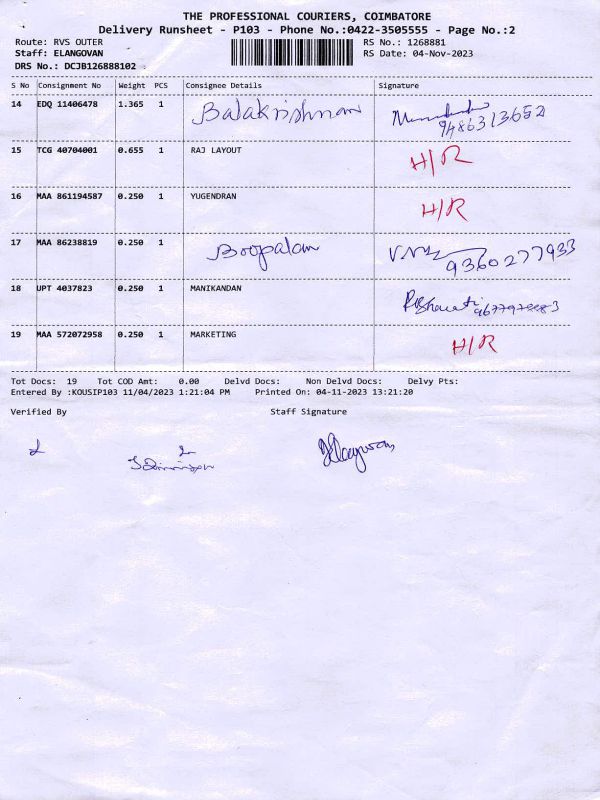 THE PROFESSIONAL COURIERS, COIMBATORE
Delivery Runsheet - P103 - Phone No.:0422-3505555 - Page No.:2
Route: RVS OUTER RS No.: 1268881
Staff: ELANGOVAN RS Date: 04-Nov-2023
DRS No.: DCJB126888102
S No Consignment No Weight PCS Consignee Details Signature
14 EDQ 11406478 1.365 1 Balakrishnan 9486313652
15 TCG 40704001 0.655 1 RAJ LAYOUT H/R
16 MAA 861194587 0.250 1 YUGENDRAN H/R
17 MAA 86238819 0.250 1 Boopalan 9360277933
18 UPT 4037823 0.250 1 MANIKANDAN
19 MAA 572072958 0.250 1 MARKETING H/R
Tot Docs: 19 Tot COD Amt: 0.00 Delvd Docs: Non Delvd Docs: Delvy Pts:
Entered By :KOUSIP103 11/04/2023 1:21:04 PM Printed On: 04-11-2023 13:21:20
Verified By Staff Signature
Elangovan